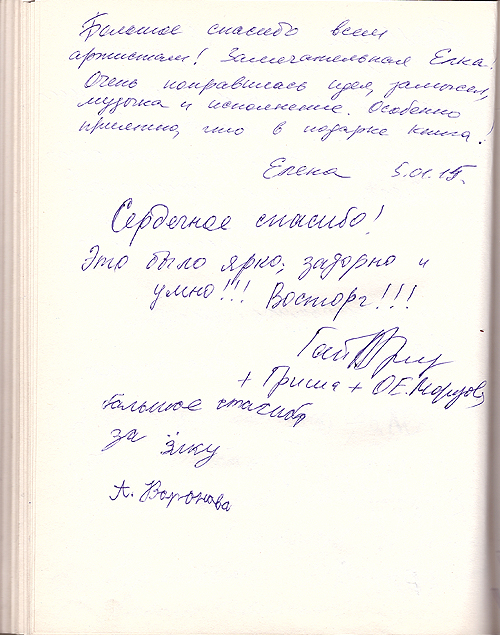 Большое спасибо всем
артистам! Замечательная Елка!
Очень понравилась идея, замысел,
музыка и исполнение. Особенно
приятно, что в подарке книга!
Елена 5.01.15г.
Сердечное спасибо!
Это было ярко, задорно и
умно!!! Восторг!!!
+ Гриша + О.Е.
Большое спасибо
за ёлку
А. Воронова